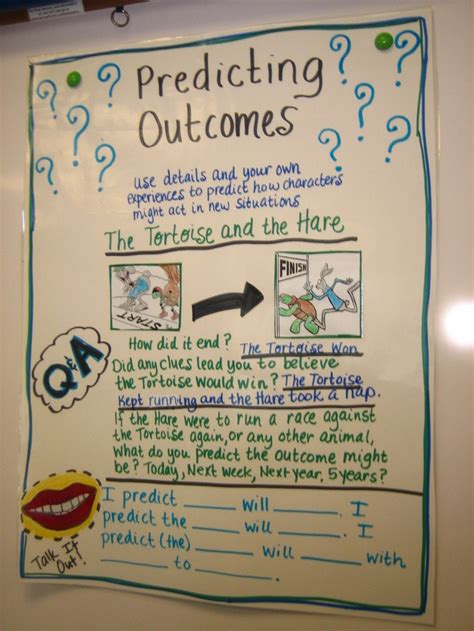 ? ? ? ? ? ? ? ?
Predicting
Outcomes
use details and your own
experiences to predict how characters
might act in new situations
The Tortoise and the Hare
START
FINISH
How did it end? The Tortoise Won
Q&A
Did any clues lead you to believe
the Tortoise would win? The Tortoise
kept running and the Hare took a nap.
If the Hare were to run a race against
the Tortoise again, or any other animal,
what do you predict the outcome might
be? Today, Next week, Next year, 5 years?
I predict ____ will ____. I
predict the ____ will ____. I
predict (the) ____ will ____ with
____ to ____.
Talk It
Out!